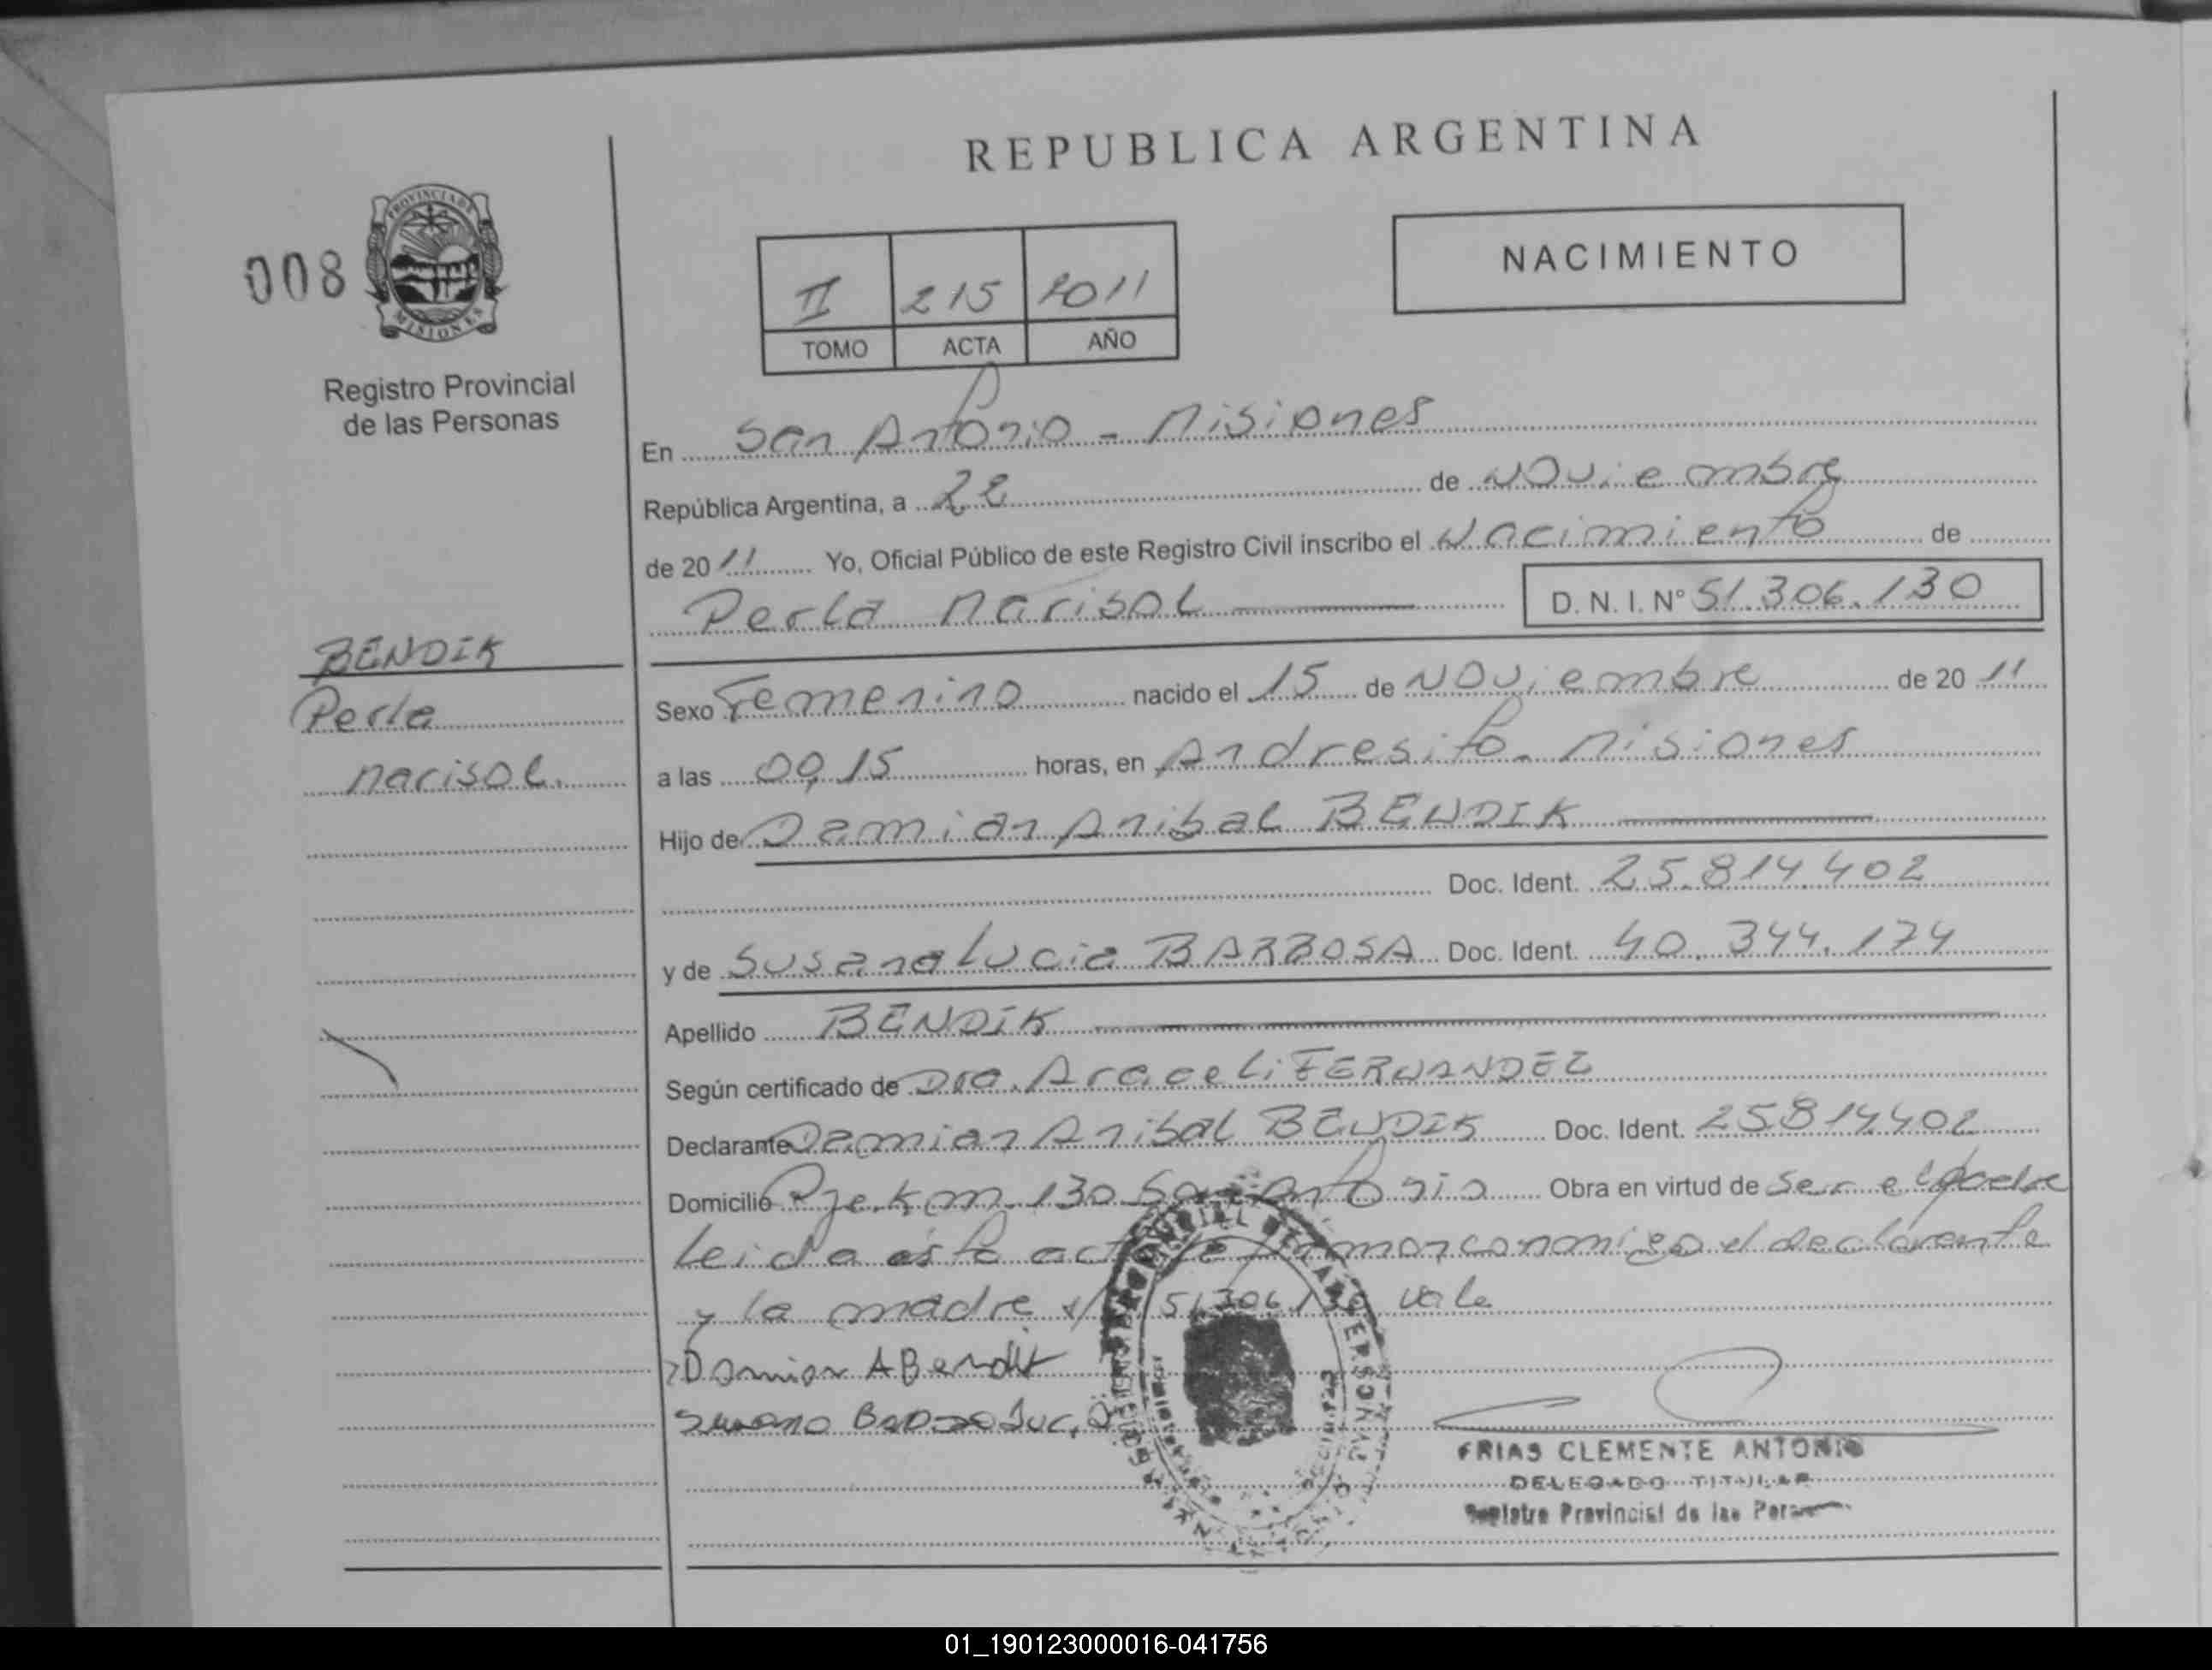 REPUBLICA ARGENTINA
008
PROVINCIA DE
MISIONES
Registro Provincial
de las Personas
II 215 2011
TOMO ACTA AÑO
NACIMIENTO
En San Antonio - Misiones
República Argentina, a 22 de Noviembre
de 2011 Yo, Oficial Público de este Registro Civil inscribo el Nacimiento de
Perla Marisol D. N. I. N° 51.306.130
BENDIK
Perla
Marisol.
Sexo Femenino nacido el 15 de Noviembre de 2011
a las 09,15 horas, en Andresito - Misiones
Hijo de Damian Anibal BENDIK
Doc. Ident. 25.814.402
y de Susana Lucia BARBOSA Doc. Ident. 40.344.174
Apellido BENDIK
Según certificado de Dra. Araceli FERNANDEZ
Declarante Damian Anibal BENDIK Doc. Ident. 25814402
Domicilio Pje. Km 130 San Antonio Obra en virtud de ser el padre
Leida esta acta firman conmigo el declarante
y la madre 51306130 vale
Damian A Bendik
FRIAS CLEMENTE ANTONIO
DELEGADO TITULAR
Registro Provincial de las Per
01_190123000016-041756